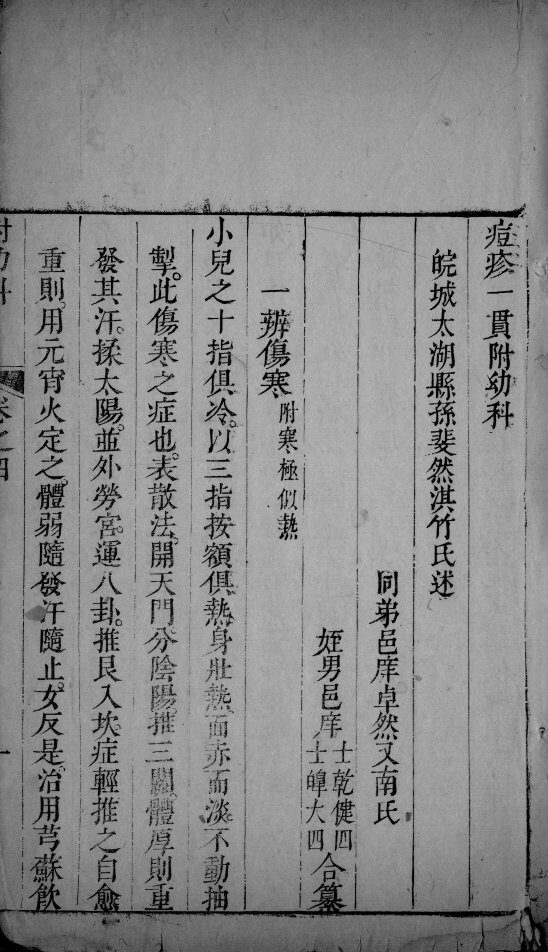 痘疹一貫附幼科
皖城太湖縣孫斐然淇竹氏述
同弟邑庠卓然又南氏
姪男邑庠士乾健四士皥大四合纂
一辨傷寒附寒極似熱
小兒之十指俱冷。以三指按額俱熱。身壯熱。面赤而淡。不動抽
掣。此傷寒之症也。表散法。開天門。分陰陽。推三關。體厚則重
發其汗。揉太陽。並外勞宮。運八卦。推艮入坎。症輕推之自愈
重則用元宵火定之。體弱隨發汗隨止。女反是。治用芎蘇飲
附幼科
卷之四
一